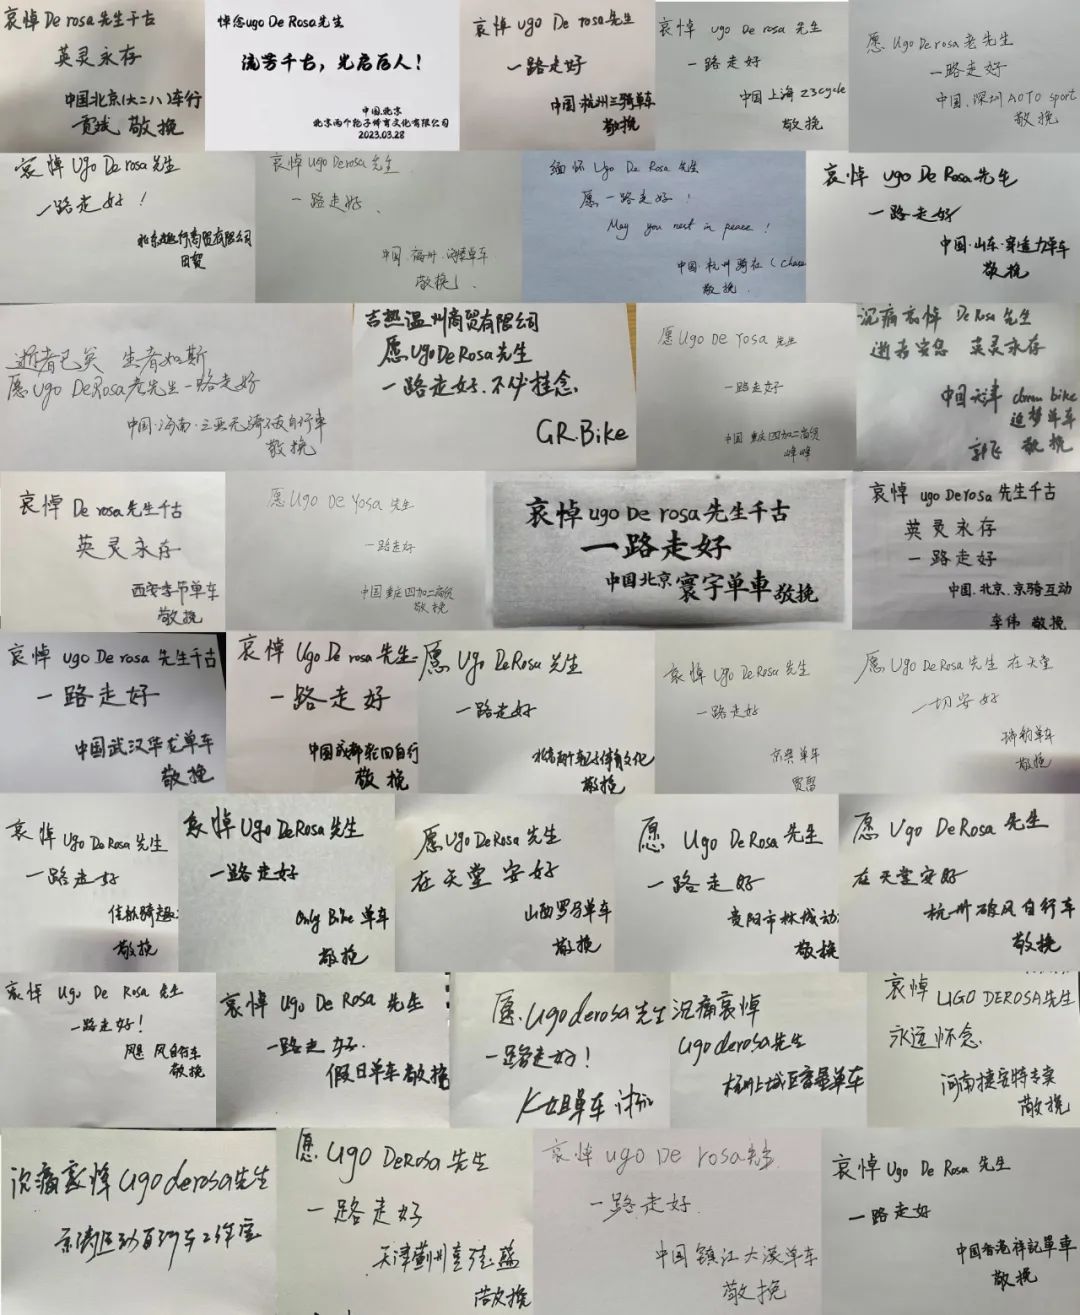 哀悼De rosa先生千古
英灵永存
中国北京(大二八)车行
敬挽
悼念ugo De Rosa先生
流芳千古，光启后人！
中国.北京
北京两个轮子体育文化有限公司
2023.03.28
哀悼ugo De rosa先生
一路走好
中国·杭州三骑单车
敬挽
哀悼 ugo De rosa 先生
一路走好
中国上海 Z3cycle
敬挽
愿 Ugo De rosa 老先生
一路走好
中国.深圳 AOTO sport
敬挽
哀悼 Ugo De rosa 先生
一路走好！
有限公司
哀悼 ugo De rosa 先生
一路走好、
中国·福州·单车
敬挽
缅怀 Ugo De Rosa 先生
愿一路走好！
May you rest in peace！
中国·杭州骑在（Chase
敬挽
哀悼 ugo De Rosa 先生
一路走好
中国·山东·力单车
敬挽
逝者已矣 生者如斯
愿Ugo DeRosa老先生一路走好
中国·海南·三亚无自行車
敬挽
吉熱温州商贸有限公司
愿UgoDeRosa先生
一路走好.不必挂念.
GR.Bike
愿Ugo De Yosa 先生
一路走好
中国 重庆四加二商贸
峰峰
沉痛哀悼 De Rosa 先生
逝者安息 英灵永存
中国天津 bike
追梦单车
郭飞 敬挽
哀悼 De rosa先生千古
英灵永存
西安季节单车
敬挽
愿Ugo De Yosa 先生
一路走好
中国重庆四加二商贸
敬挽
哀悼ugo De rosa先生千古
一路走好
中国北京 寰宇单車敬挽
哀悼 ugo De rosa 先生千古
英灵永存
一路走好
中国.北京.京骑互动
李伟 敬挽
哀悼 ugo De rosa 先生千古
一路走好
中国武汉华龙单车
敬挽
哀悼 Ugo De rosa 先生
一路走好
中国成都轮回自行
敬挽
愿 Ugo DeRosa 先生
一路走好
北京两个轮子体育文化
敬挽
哀悼 Ugo DeRosa先生
一路走好
单车
贾雷
愿Ugo DeRosa先生在天堂
一切安好
瑞豹单车
敬挽
哀悼 Ugo DeRosa 先生
一路走好
佳骑趣
敬挽
哀悼UgoDeRosa先生
一路走好
Only Bike 单车
敬挽
愿Ugo DeRosa先生
在天堂安好
山西罗马单车
敬挽
愿 Ugo DeRosa先生
一路走好
贵阳市林城动
敬挽
愿 Ugo DeRosa 先生
在天堂安好
杭州破风自行车
敬挽
哀悼 Ugo De Rosa 先生
一路走好！
风自行车
敬挽
哀悼 Ugo De Rosa 先生
一路走好.
假日单车敬挽
愿 ugo derosa 先生
一路走好！
K姐单车
沉痛哀悼
Ugo derosa先生
杭州上城区单车
哀悼 UGO DEROSA先生
永远怀念.
河南捷安特专卖
敬挽
沉痛哀悼 ugo derosa先生
工作室
愿 Ugo DeRosa 先生
一路走好
天津蓟州
敬挽
哀悼 ugo De rosa先生
一路走好.
中国镇江大漠单车
敬挽
哀悼 Ugo De Rosa 先生
一路走好
中国香港祥記單車
敬挽